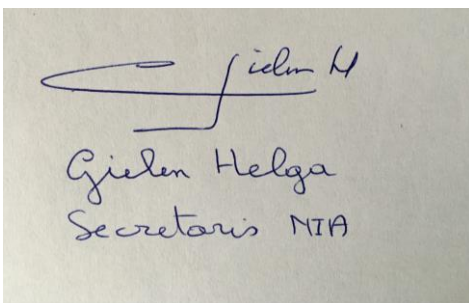 Gielen H
Gielen Helga
Secretaris NIA